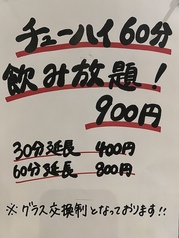 チューハイ60分
飲み放題!
900円
30分延長 400円
60分延長 800円
※グラス交換制となっております!!